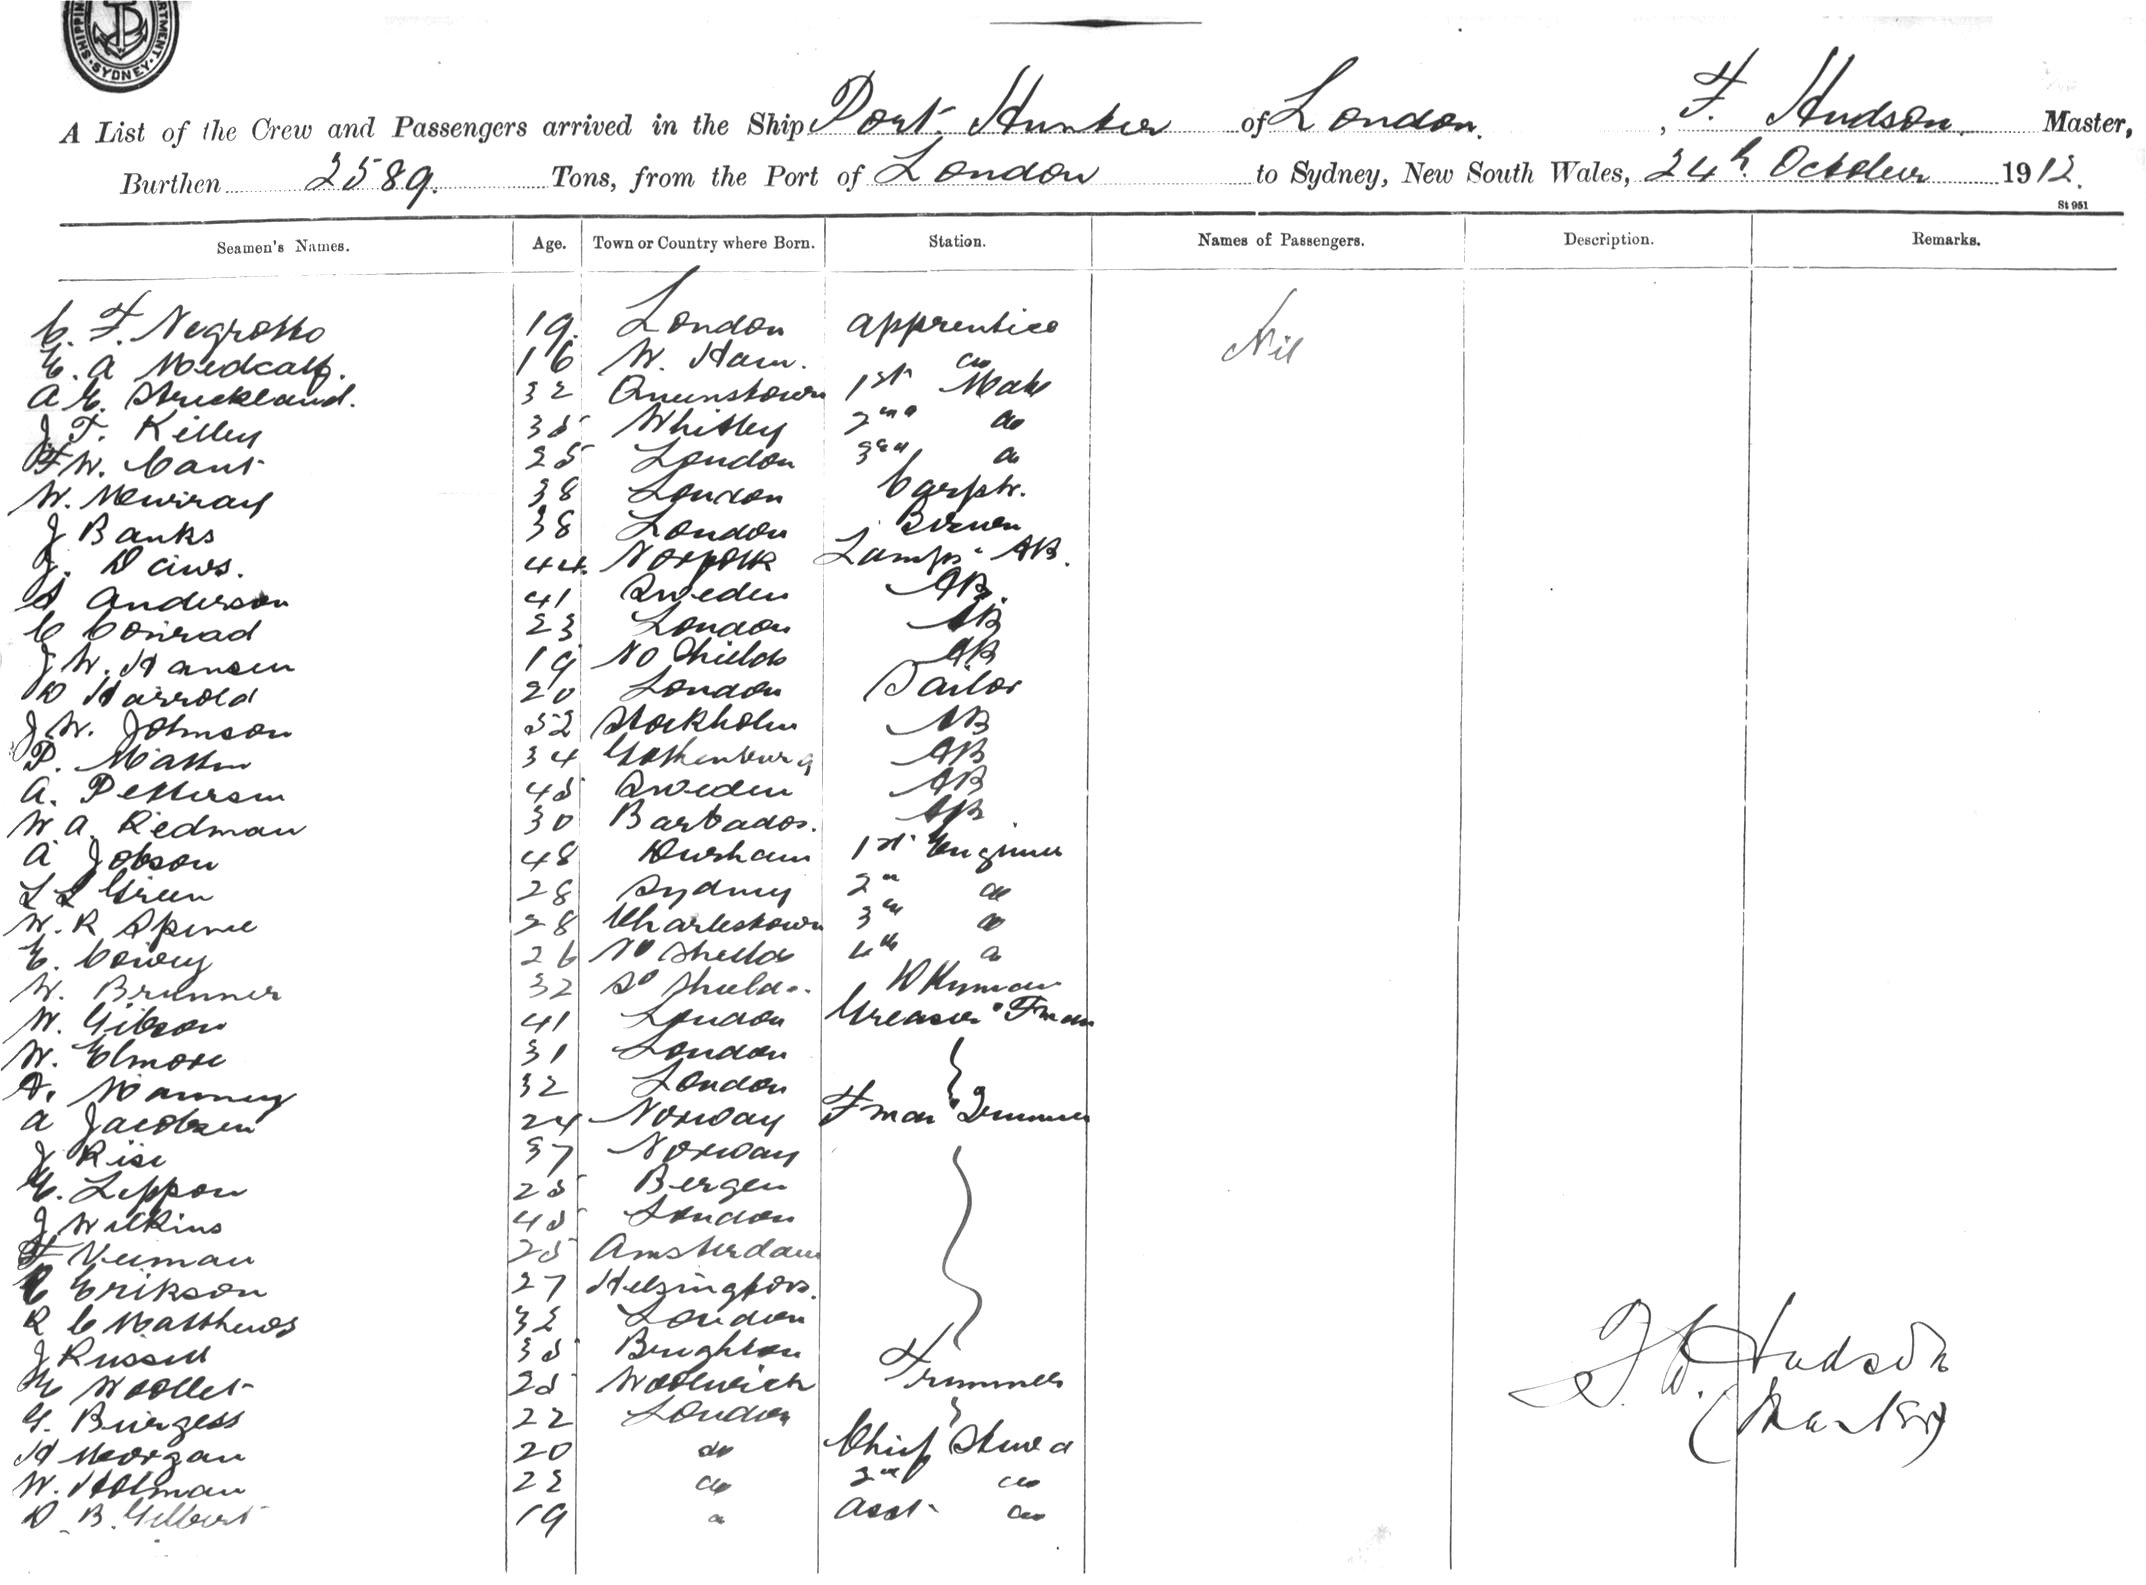 SHIPPING DEPARTMENT SYDNEY
A List of the Crew and Passengers arrived in the Ship Port Hunter of London. , F. Hudson Master,
Burthen 2589. Tons, from the Port of London to Sydney, New South Wales, 24th October 1912.
St 951
Seamen's Names. Age. Town or Country where Born. Station. Names of Passengers. Description. Remarks.
C. F. Negrotto 19. London apprentice Nil
E. A Medcalf. 16 W. Ham. do
A E. Strickland. 32 Queenstown 1st Mate
J T. Kelley 35 Whitley 2nd do
F W. Cant 25 London 3rd do
W. Murray 38 London Carptr.
J Banks 38 London Bosun
J. Daws. 44. Norfolk Lamps & AB.
A Anderson 41 Sweden AB.
C Conrad 23 London AB
J W. Hansen 19 No Shields AB
D Harrold 20 London Sailor
J. W. Johnson 52 Stockholm AB
P. Matten 34 Gothenburg AB
A. Petterson 45 Sweden AB
W A. Redman 30 Barbados. AB
A Jobson 48 Durham 1st Engineer
L L Green 28 Sydney 2nd do
W. R Spence 28 Charlestown 3rd do
E. Cowey 26 No Shields 4th do
W. Brunner 32 So Shields. Dkyman
W. Gibson 41 London Greaser & Fman
W. Elmore 31 London
A. Manney 32 London
A Jacobsen 24 Norway Fman & Trimmer
J Risi 37 Norway
E. Leppon 25 Bergen
J Wilkins 45 London
F Neuman 25 Amsterdam
C Erikson 27 Helsingfors.
R C Matthews 32 London
J Russell 35 Brighton
E Woollet 25 Woolwich Trimmers
G. Burgess 22 London
H Morgan 20 do Chief Stewd
W. Holman 22 do 2nd do
D. B. Gilbert 19 do asst do
F. W. Hudson
(Master)